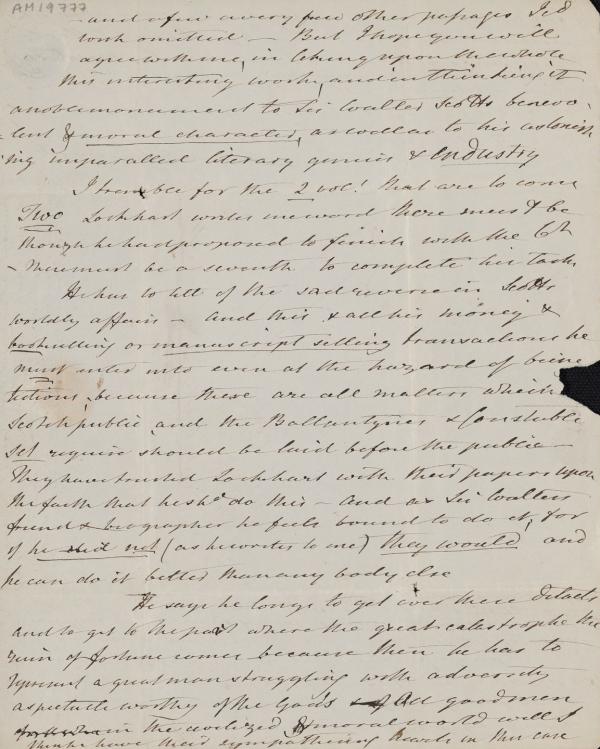 AM 19777
- and a few a very few other passages I cd
wish omitted - But I hope you will
agree with me, in looking upon the whole
this interesting work, and in thinking it
a noble monument to Sir Walter Scotts benevo-
lent & moral character, as well as to his astonish
ing unparalled literary genius & industry
I tremble for the 2 vol! that are to come
Two Lockhart writes me word there must be
though he had proposed to finish with the 6th
- there must be a seventh to complete his task
He has to tell of the sad reverse in Scotts
worldly affairs - and this & all his money &
bookselling or manuscript selling transactions he
must enter into even at the hazard of being
tedious, because these are all matters which
Scotch public, and the Ballantynes & Constable
set require should be laid before the public
They have trusted Lockhart with their papers upon
the faith that he shd do this - and as Sir Walters
friend & biographer he feels bound to do it, for
if he did not (as he writes to me) they would and
he can do it better than any body else
He says he longs to get over these details
and to get to the part where the great catastrophe the
ruin of fortune comes because then he has to
represent a great man struggling with adversity
a spectacle worthy of the Gods & All good men
in the civilized & moral world will I
think have their sympathising hearts in this case